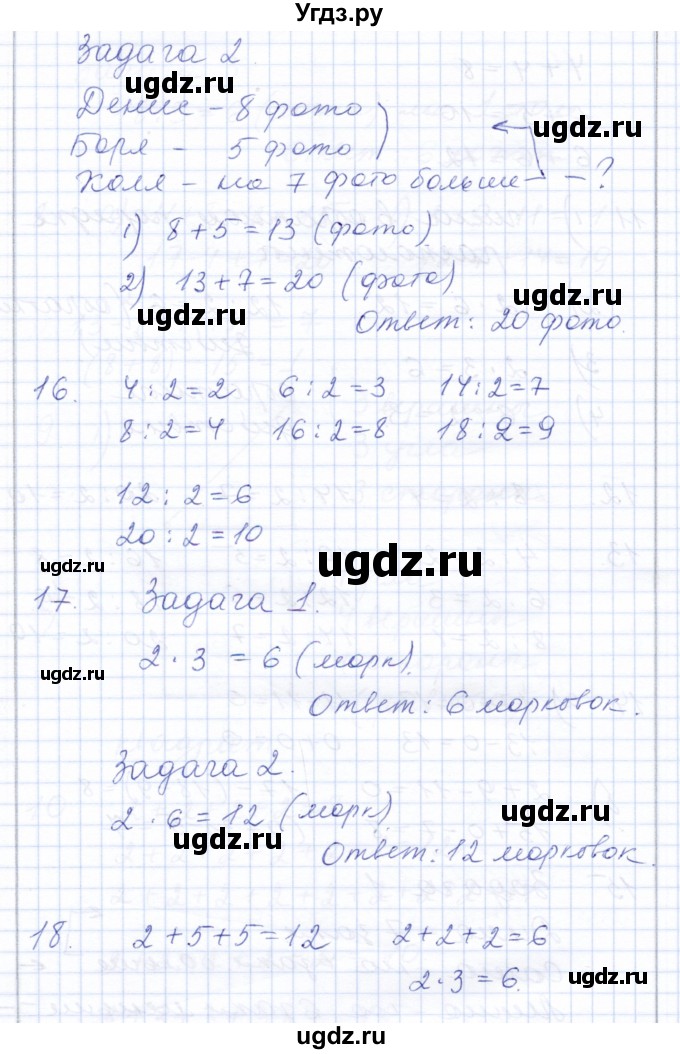 Угдз.ру
Задача 2
Денис – 8 фото
ugdz.ru
ugdz.ru
Боря – 5 фото
Коля – на 7 фото больше – ?
1) 8 + 5 = 13 (фото)
ugdz.ru
2) 13 + 7 = 20 (фото)
ugdz.ru
ugdz.ru
Ответ: 20 фото.
16. 4 : 2 = 2 6 : 2 = 3 14 : 2 = 7
8 : 2 = 4 16 : 2 = 8 18 : 2 = 9
12 : 2 = 6
20 : 2 = 10
ugdz.ru
ugdz.ru
17. Задача 1.
2 · 3 = 6 (морк).
ugdz.ru
Ответ: 6 морковок.
Задача 2.
2 · 6 = 12 (морк)
ugdz.ru
ugdz.ru
Ответ: 12 морковок.
18. 2 + 5 + 5 = 12 2 + 2 + 2 = 6
2 · 3 = 6.
ugdz.ru
ugdz.ru